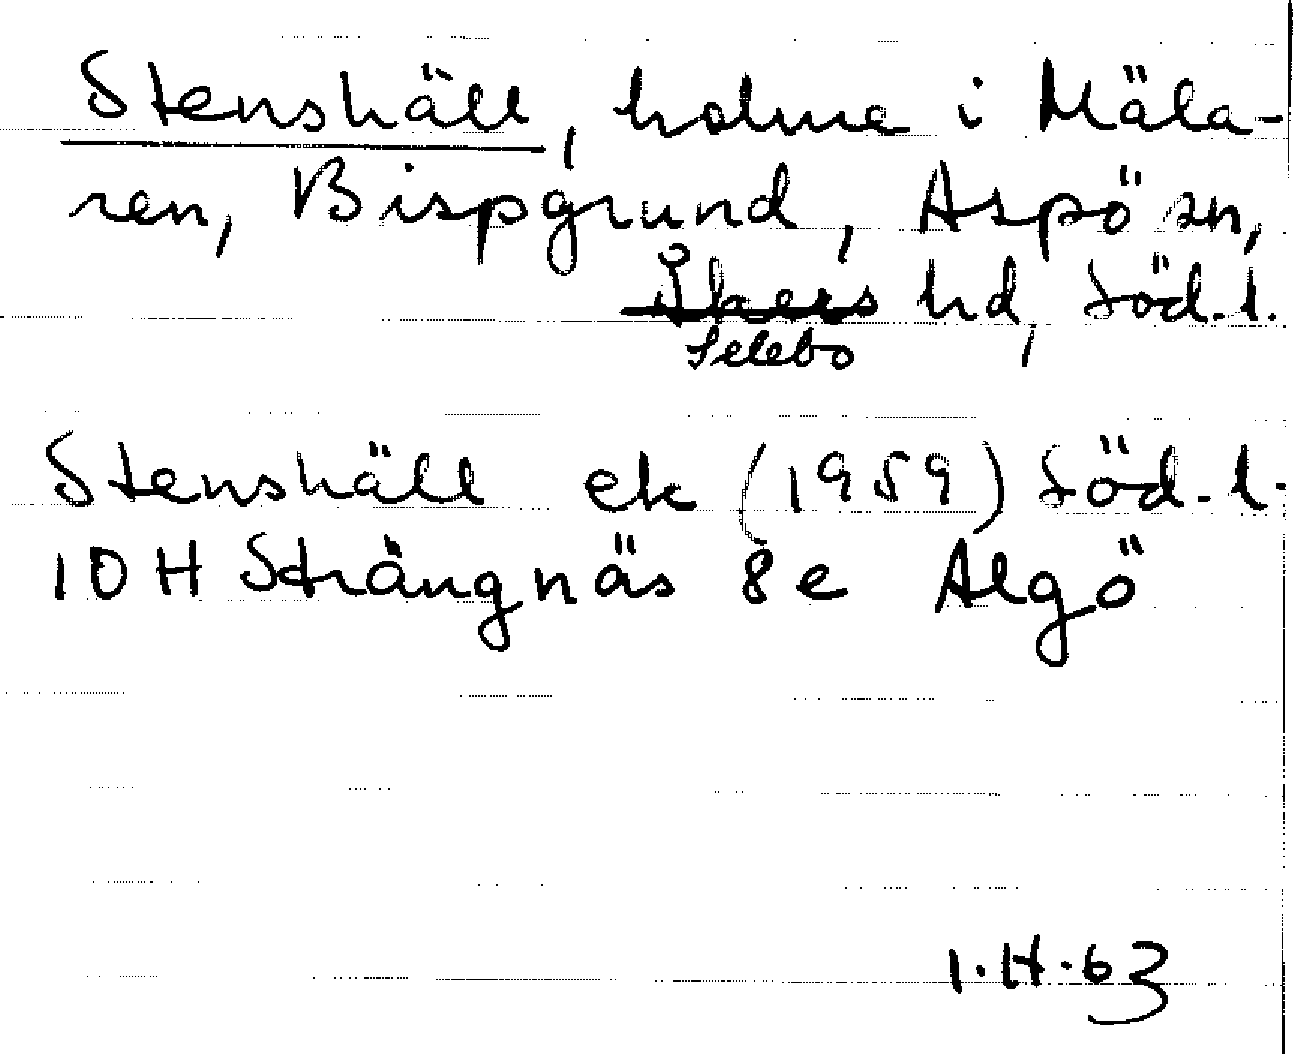 Stenshäll, holme i Mäla-
ren, Bispgrund, Aspö sn,
Åkers hd, Söd.l.
Selebo
Stenshäll ek (1959) Söd.l.
10H Strängnäs 8e Algö
1.H.63